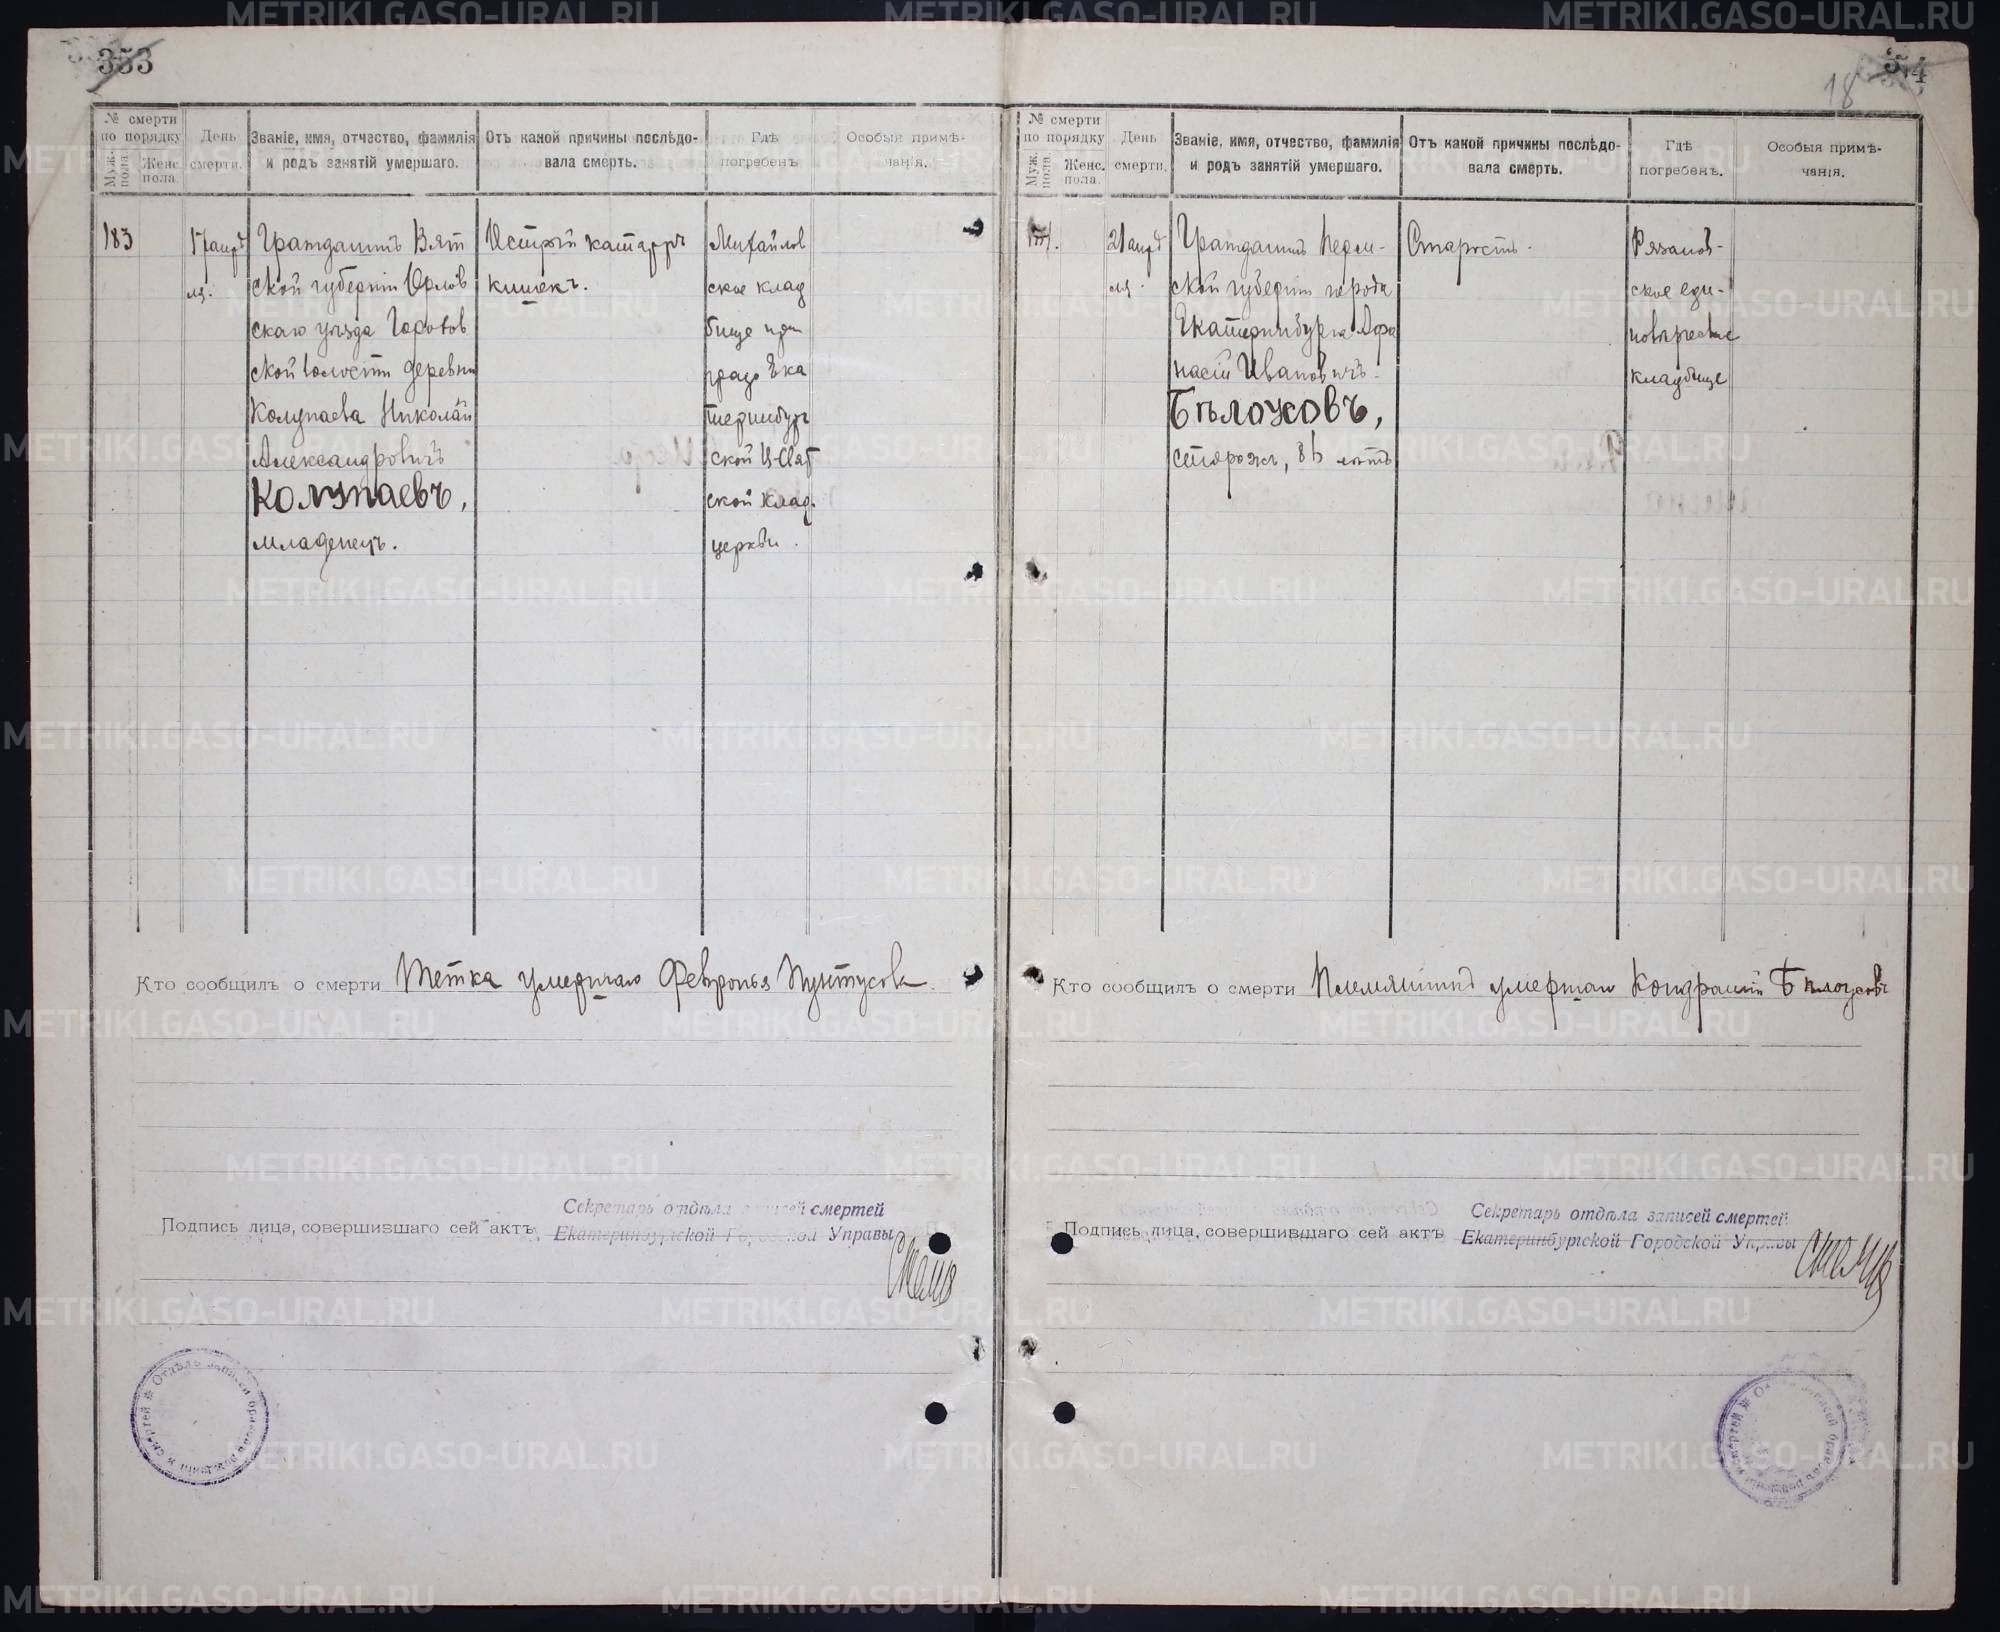 353
№ смерти
по порядку
Муж. пола.
Женс. пола.
День смерти.
Званіе, имя, отчество, фамилія
и родъ занятій умершаго.
Отъ какой причины послѣдо-
вала смерть.
Гдѣ
погребенъ
Особыя примѣ-
чанія.
183
17 апрѣ
ля.
Гражданинъ Вят
ской губерніи Орлов
скаго уѣзда
ской волости деревни
Колупаева Николай
Александровичъ
Колупаевъ,
младенецъ.
Острый катарръ
кишекъ.
Михайлов
ское клад
бище при
градо Ека
теринбург
ской
ской клад.
церкви.
Кто сообщилъ о смерти Тетка умершаго Февронья Пунтусова.
Подпись лица, совершившаго сей актъ
Секретарь отдѣла записей смертей
Екатеринбургской Городской Управы
18
№ смерти
по порядку
Муж. пола.
Женс. пола.
День
смерти.
Званіе, имя, отчество, фамилія
и родъ занятій умершаго.
Отъ какой причины послѣдо-
вала смерть.
Гдѣ
погребенъ.
Особыя примѣ-
чанія.
21 апрѣ
ля.
Гражданинъ Перм-
ской губерніи города
Екатеринбурга Афа
насій Ивановичъ
Бѣлоусовъ,
сторожъ, 86 лѣтъ
Старость.
Рязанов-
ское еди-
новѣрческое
кладбище
Кто сообщилъ о смерти Племянникъ умершаго Кондратій Бѣлоусовъ
Подпись лица, совершившаго сей актъ
Секретарь отдѣла записей смертей
Екатеринбургской Городской Управы
METRIKI.GASO-URAL.RU